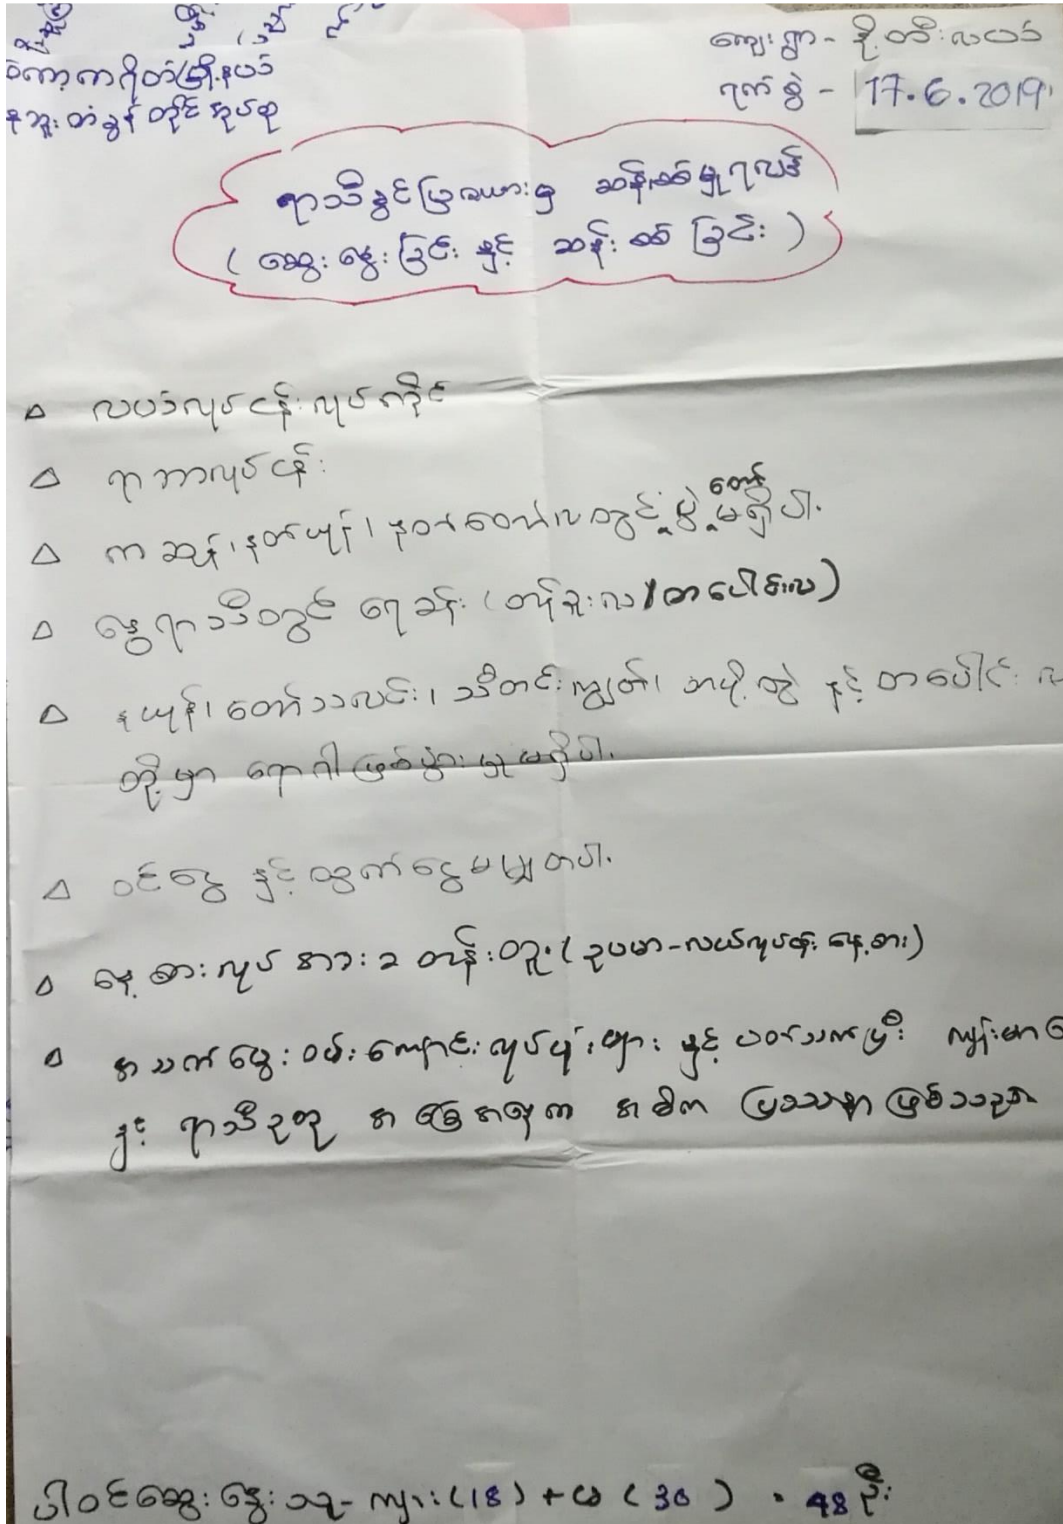 ကျေးရွာ - ဒို့တီးလယ်
ကော့ကရိတ်မြို့နယ်
ရက်စွဲ - 17.6.2019
ရာသီခွင်ပြဇယားမှ ဆန်းစစ်မှုရလဒ်
( ဆွေးနွေးခြင်း နှင့် ဆန်းစစ်ခြင်း )
△ လယ်လုပ်ငန်းလုပ်ကိုင်
△ ရာဘာလုပ်ငန်း
△ ကဆုန်၊ နတ်ယျန်၊ နတ်တော်လတွင် ပွဲတော်မရှိပါ.
△ နွေရာသီတွင် ရေခန်း (တန်ခူးလ / တပေါင်းလ)
△ နယုန်၊ တော်သလင်း၊ သီတင်းကျွတ်၊ တပို့တွဲ နှင့် တပေါင်း လ
တို့မှာ ရောဂါဖြစ်ပွားမှု မရှိပါ.
△ ဝင်ငွေ နှင့် ထွက်ငွေ မမျှတပါ.
△ နေ့စားလုပ်အားခ တန်းတူ. (ဥပမာ-လယ်လုပ်ငန်း နေ့စား)
△ အသက်မွေးဝမ်းကျောင်းလုပ်ငန်းများ နှင့် ပတ်သက်ပြီး ကျန်းမာ
နှင့် ရာသီဥတု အခြေအနေက အဓိက ပြဿနာ ဖြစ်သည်
ပါဝင်ဆွေးနွေးသူ - ကျား (18) + မ (30) = 48 ဦး